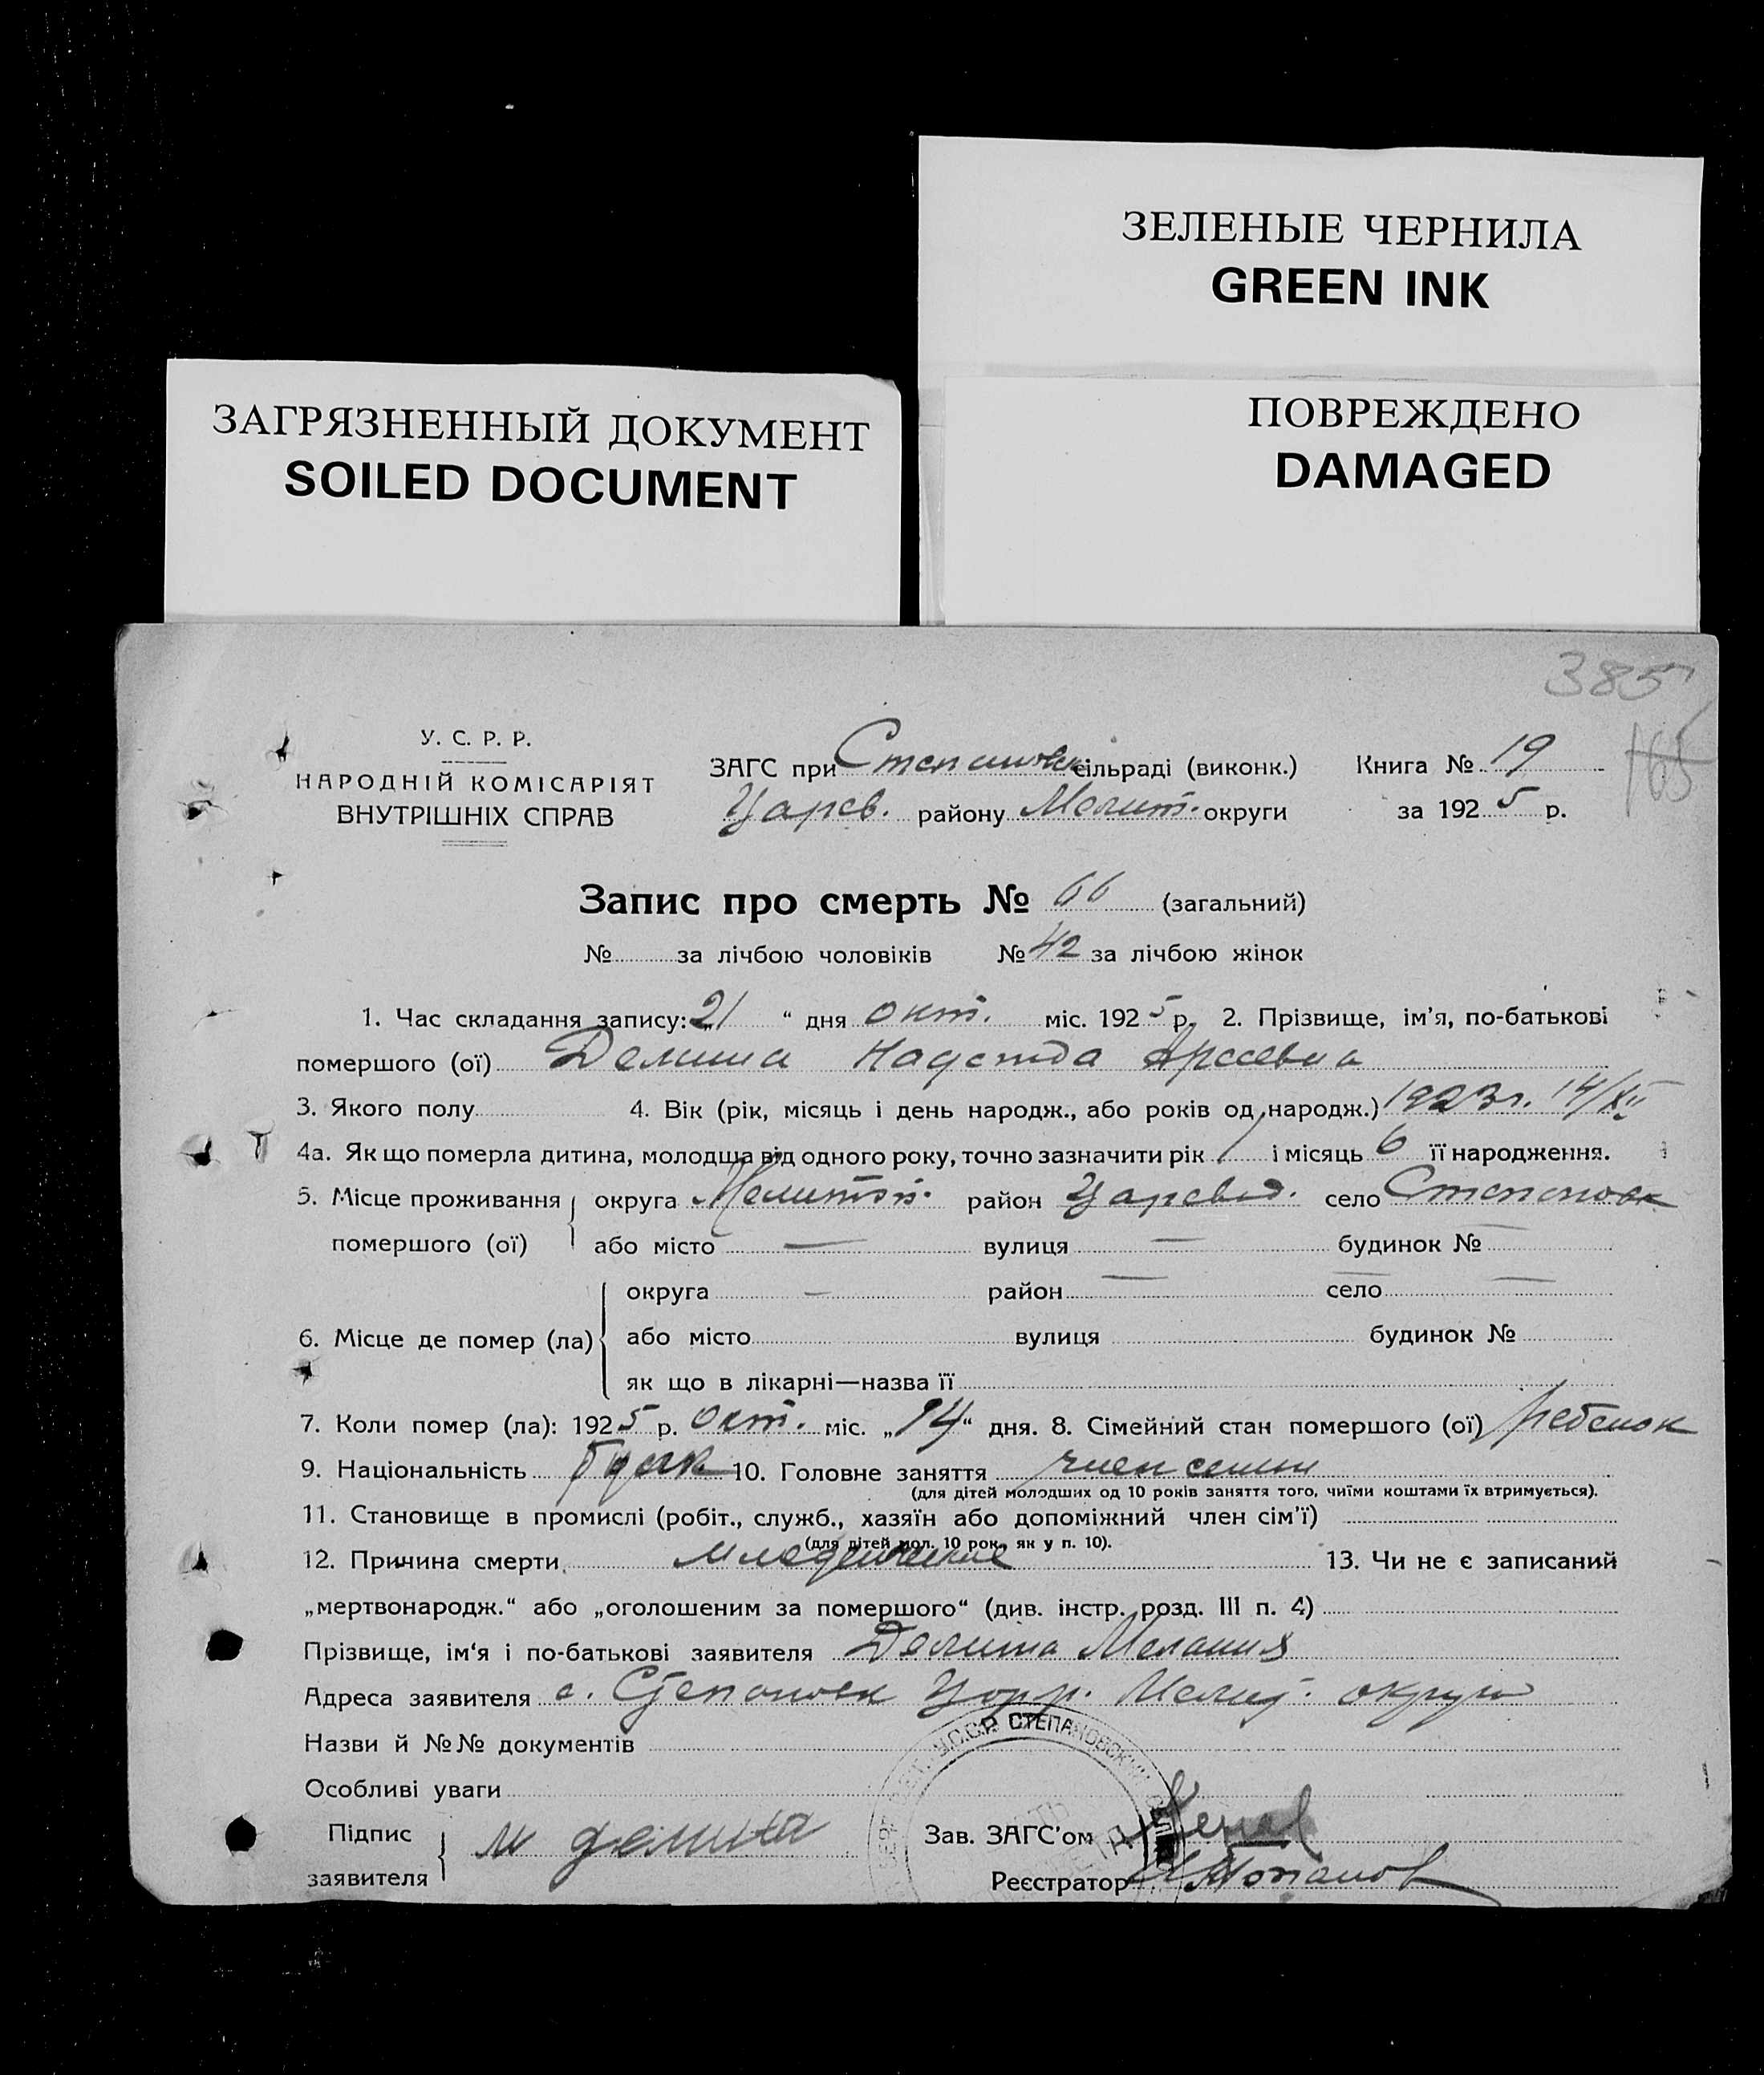 ЗЕЛЕНЫЕ ЧЕРНИЛА
GREEN INK
ЗАГРЯЗНЕННЫЙ ДОКУМЕНТ
SOILED DOCUMENT
ПОВРЕЖДЕНО
DAMAGED
385
165
У. С. Р. Р.
НАРОДНІЙ КОМІСАРІЯТ
ВНУТРІШНІХ СПРАВ
ЗАГС при Степановск. сільраді (виконк.) Книга № 19
Царев. району Мелит. округи за 1925 р.
Запис про смерть № 66 (загальний)
№ за лічбою чоловіків № 42 за лічбою жінок
1. Час складання запису: „21“ дня окт. міс. 1925 р. 2. Прізвище, ім’я, по-батькові
помершого (ої)
3. Якого полу 4. Вік (рік, місяць і день народж., або років од народж.) 1923 г. 14/XII
4а. Як що померла дитина, молодша від одного року, точно зазначити рік 1 і місяць 6 її народження.
5. Місце проживання помершого (ої) округа Мелитоп. район Царевод. село Степановк
або місто — вулиця — будинок № —
6. Місце де помер (ла) округа — район — село —
або місто вулиця будинок №
як що в лікарні—назва її
7. Коли помер (ла): 1925 р. Окт. міс. „14“ дня. 8. Сімейний стан помершого (ої) ребенок
9. Національність 10. Головне заняття член семьи
(для дітей молодших од 10 років заняття того, чиїми коштами їх втримується).
11. Становище в промислі (робіт., служб., хазяїн або допоміжний член сім’ї)
(для дітей мол. 10 рок. як у п. 10).
12. Причина смерти 13. Чи не є записаний
„мертвонародж.“ або „оголошеним за помершого“ (див. інстр. розд. III п. 4)
Прізвище, ім‘я і по-батькові заявителя Мелания
Адреса заявителя с. Степановк Цар р. Мелит. округи
Назви й №№ документів
Особливі уваги
У.С.С.Р. СТЕПАНОВСКИЙ
Підпис заявителя М Зав. ЗАГС’ом
Реєстратор